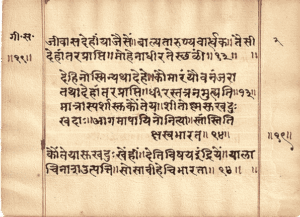 गी॰स॰
॥१९॥
जीवासदेहींयाजैसें॥बाल्यतारुण्यवार्द्धकें॥तैसी
देहांतरप्राप्ति॥मोहेनाधीरते॥१३॥
देहिनोस्मिन्यथादेहे॥कौमारंयौवनंजरा
तथादेहांतरप्राप्तिर्धीरस्तत्रनमुह्यति॥१३॥
मात्रास्पर्शास्तुकौंतेय॥शीतोष्णसुखदुः
खदाः॥आगमापायिनोनित्या॥स्तांस्तिति
क्षस्वभारत॥१४॥
कौंतेयासुखदुःखेंहीं॥देतिविषयइंद्रियें॥याला
चिनाशउत्पत्ति॥सोसावीहेचिभारता॥१४॥
२
॥१९॥